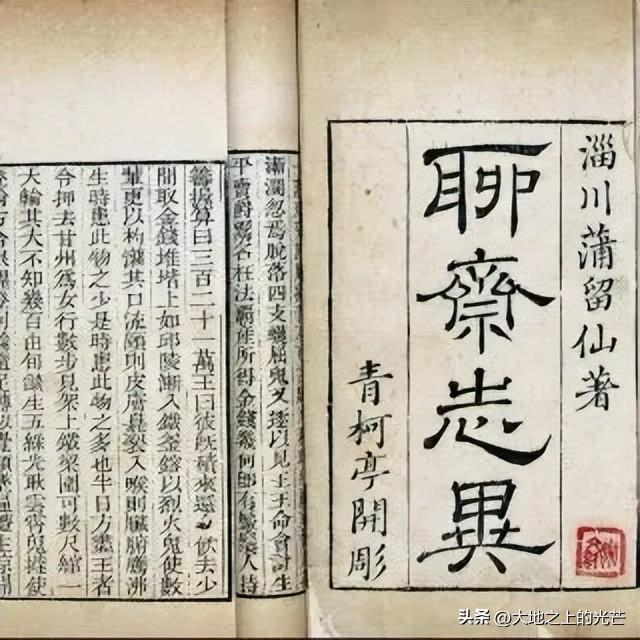 淄川蒲留仙著
聊齋志異
青柯亭開彫
漸濶忽焉脫落四支蠖屈鬼又逐以見王王命會計生
平賣爵鬻名枉法霸產所得金錢幾何即有鬡鬚人持
籌握算曰三百二十一萬王曰彼既積來還令飲去少
間取金錢堆堦上如邱陵漸入鐵釜鎔以烈火鬼使數
輩更以杓灌其口流頤則皮膚臭裂入喉則臟腑騰沸
生時患此物之少是時患此物之多也半日方盡王者
令押去甘州爲女行數步見架上鐵梁圍可數尺綰一
大輪其大不知幾百由旬燄生五綵光耿雲霄鬼撻使
头条 @大地之上的光芒